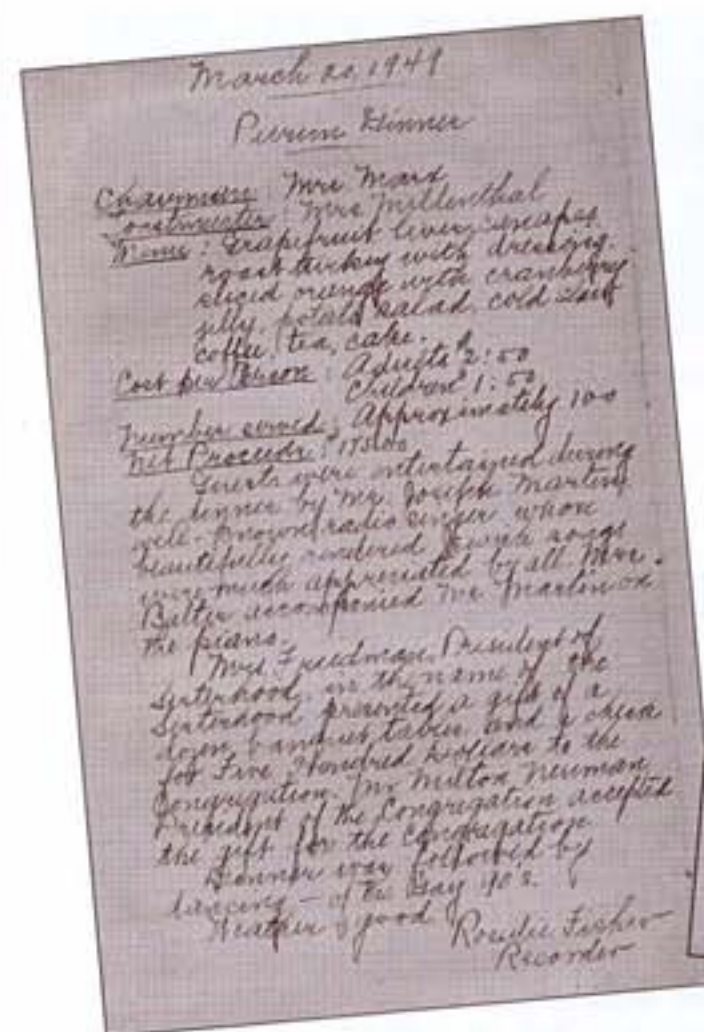 March 20, 1949
Purum Dinner
Chairman: Mrs Marx
Toastmaster: Mrs Millenthal
Menu: Grapefruit, liver,
roast turkey with dressing,
sliced orange with cranberry
jelly, potato salad, cold slaw
coffee, tea, cake.
Cost per Person: Adults $2:50
Children 1:50
Number served, Approximately 100
Net Proceeds: $175.00
Guests were entertained during
the dinner by Mr. Joseph Martin,
well-known radio singer whose
beautifully rendered Jewish songs
were much appreciated by all. Mrs.
Balter accompanied Mr Martin on
the piano.
Mrs Freedman, President of
Sisterhood, in the name of the
Sisterhood presented a gift of a
dozen banquet tables and a check
for Five Hundred Dollars to the
Congregation. Mr Milton Neuman
President of the Congregation accepted
the gift for the Congregation
Dinner was followed by
dancing - of the Gay 90s.
Weather good
Roudie Fisher
Recorder